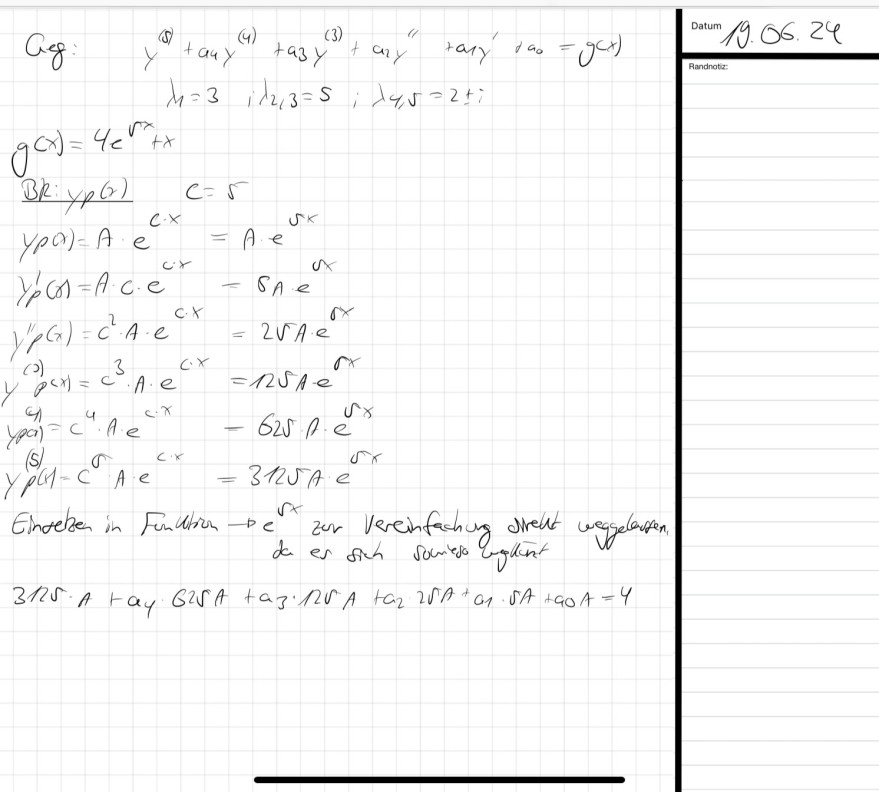 Datum 19.06.24
Randnotiz:
Geg: y^(5) + a4 y^(4) + a3 y^(3) + a2 y'' + a1 y' + a0 = g(x)
λ1 = 3 ; λ2,3 = 5 ; λ4,5 = 2 ± i
g(x) = 4e^5x + x
BR: yp(x) c = 5
yp(x) = A · e^c·x = A · e^5x
y'p(x) = A · c · e^c·x = 5A · e^5x
y''p(x) = c^2 · A · e^c·x = 25A · e^5x
y^(3)p(x) = c^3 · A · e^c·x = 125A · e^5x
y^(4)p(x) = c^4 · A · e^c·x = 625 · A · e^5x
y^(5)p(x) = c^5 · A · e^c·x = 3125A · e^5x
Einsetzen in Funktion → e^5x zur Vereinfachung direkt weggelassen,
da es sich sowieso wegkürzt
3125 · A + a4 · 625A + a3 · 125A + a2 · 25A + a1 · 5A + a0A = 4